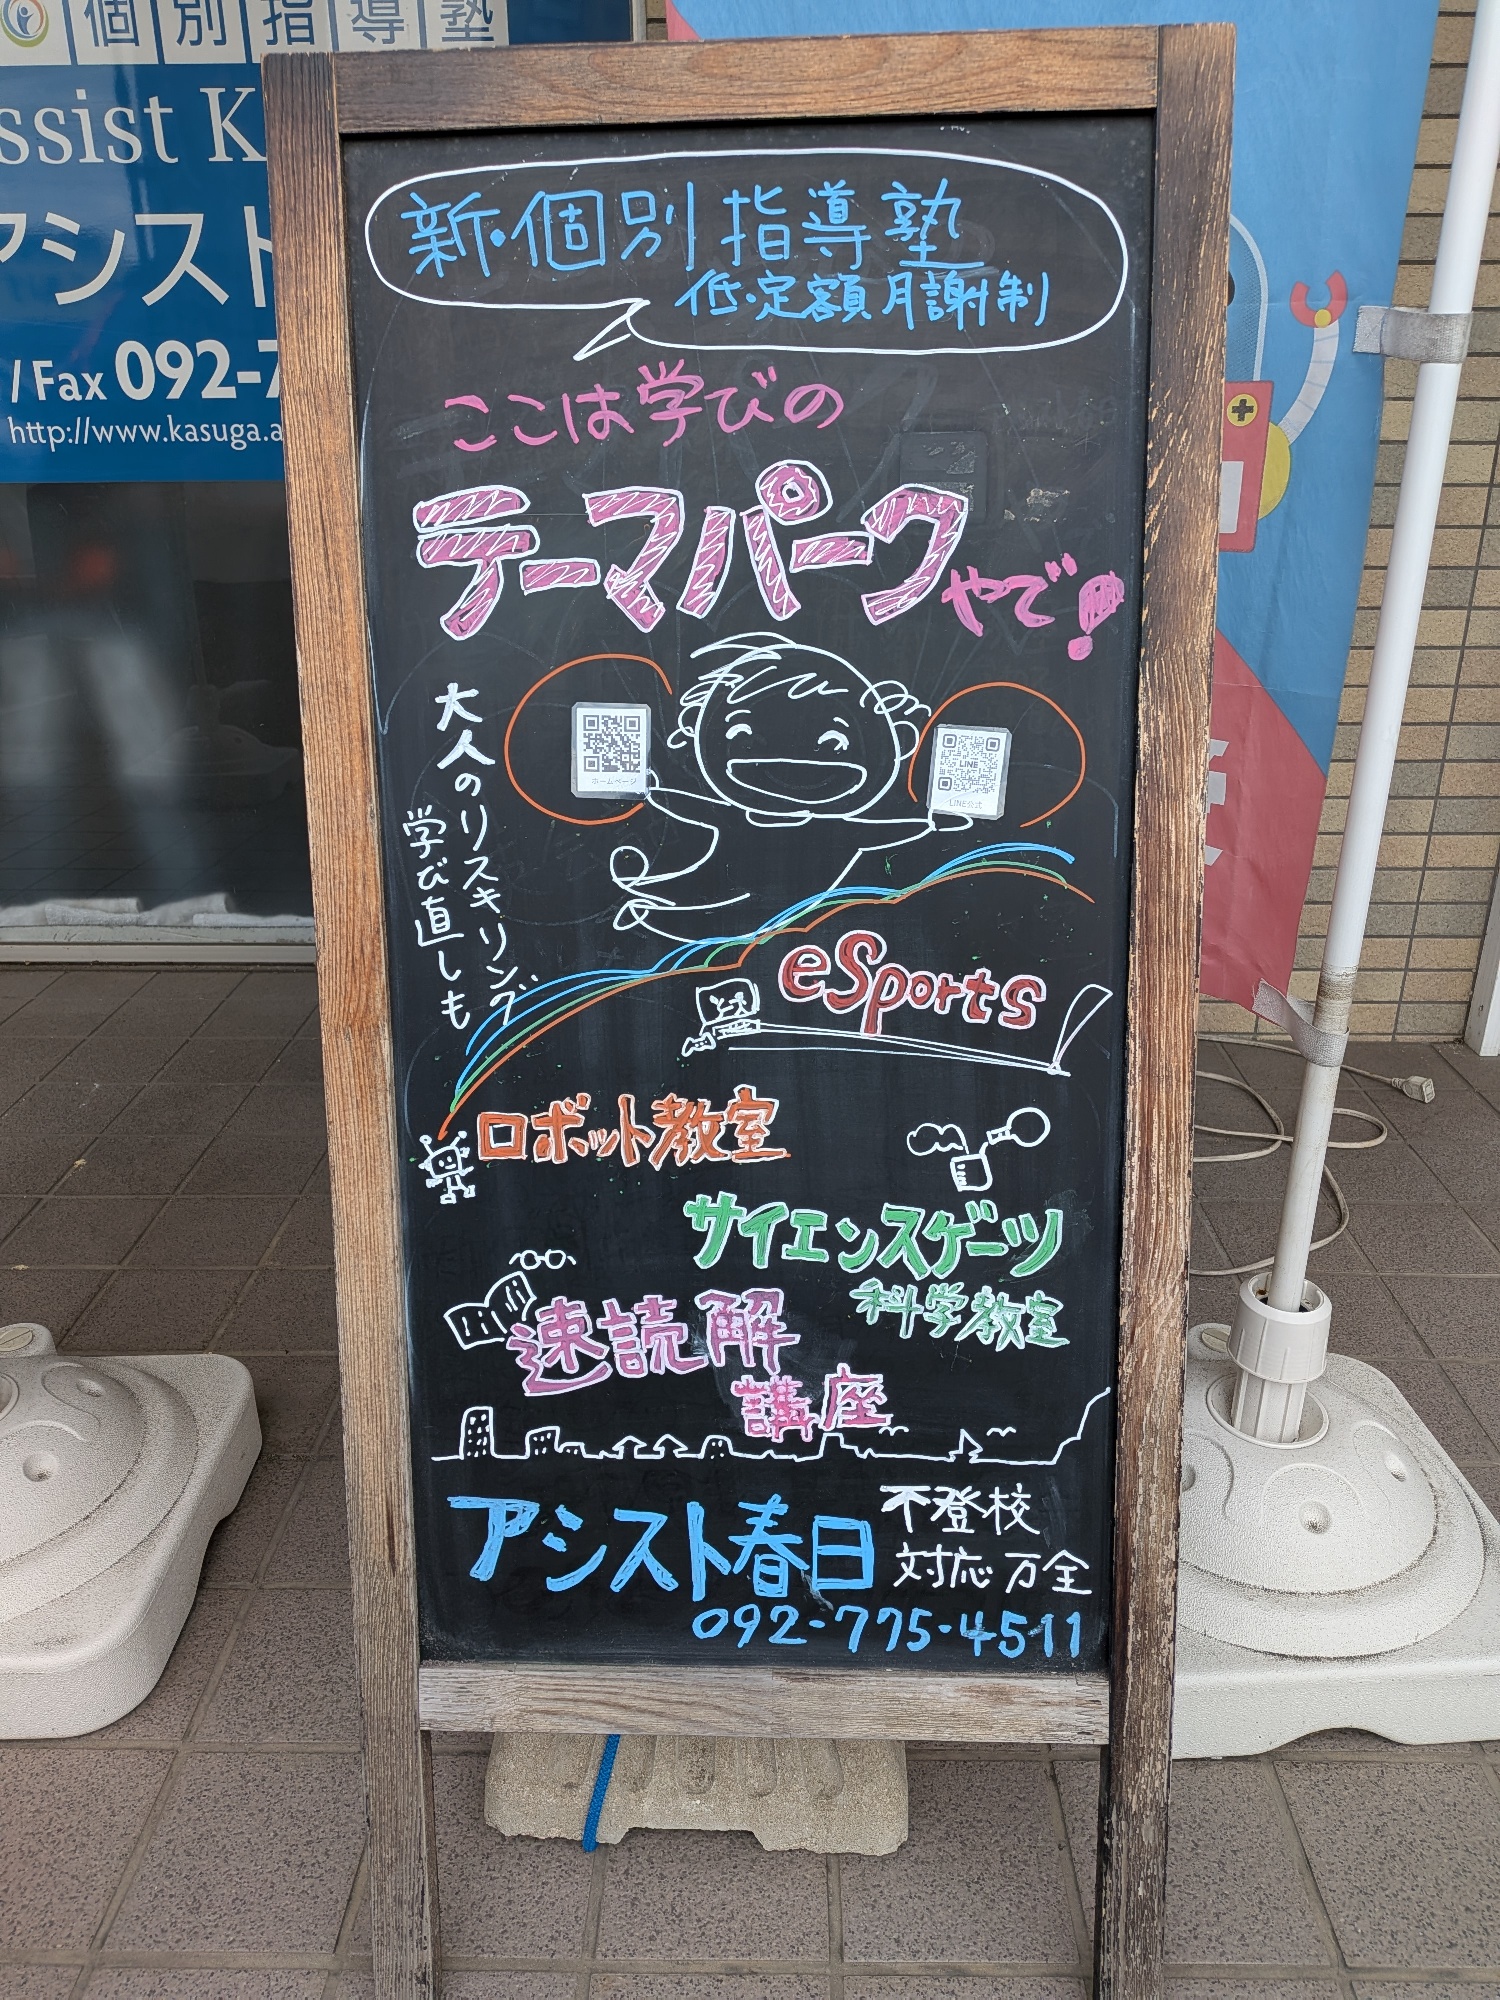 個別指導塾
ssist K
アシスト
/ Fax 092-7
http://www.kasuga.a
新・個別指導塾
低・定額月謝制
ここは学びの
テーマパークやで!
大人のリスキリング
学び直しも
ホームページ
LINE
LINE公式
eSports
ロボット教室
サイエンスゲーツ
科学教室
速読解
講座
アシスト春日
不登校
対応万全
092-775-4511